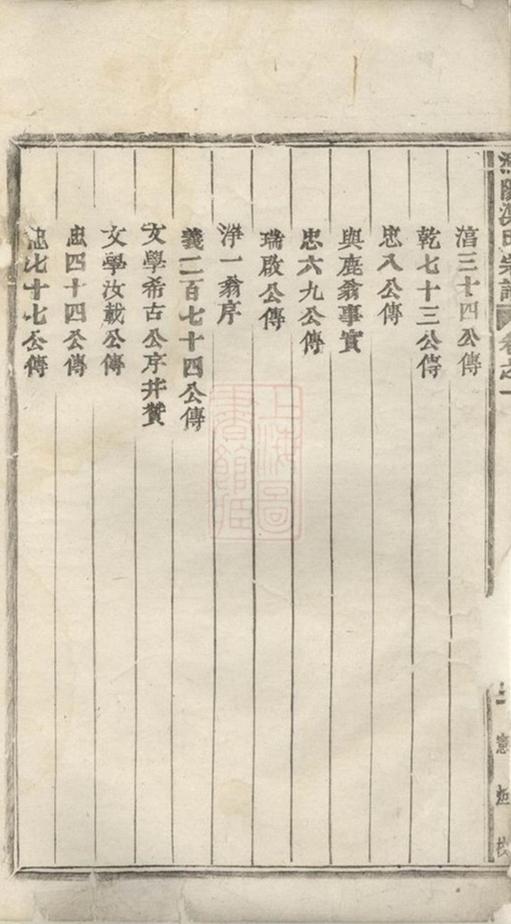 宗譜 卷之一
三十四公傳
乾七十三公傳
忠八公傳
與鹿翁事實
忠六九公傳
瑞啟公傳
淨一翁序
義二百七十四公傳
文學希古公序并贊
文學汝載公傳
忠四十四公傳
忠七十七公傳
上海圖書館藏